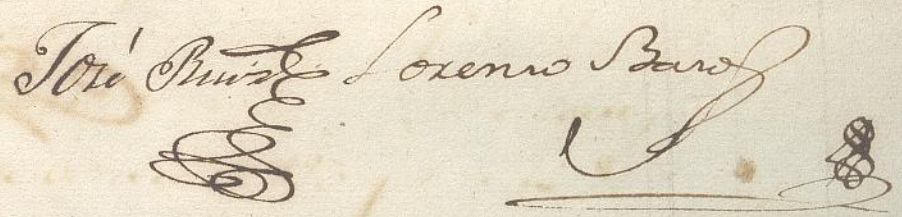 José Ruiz Lorenzo Bares